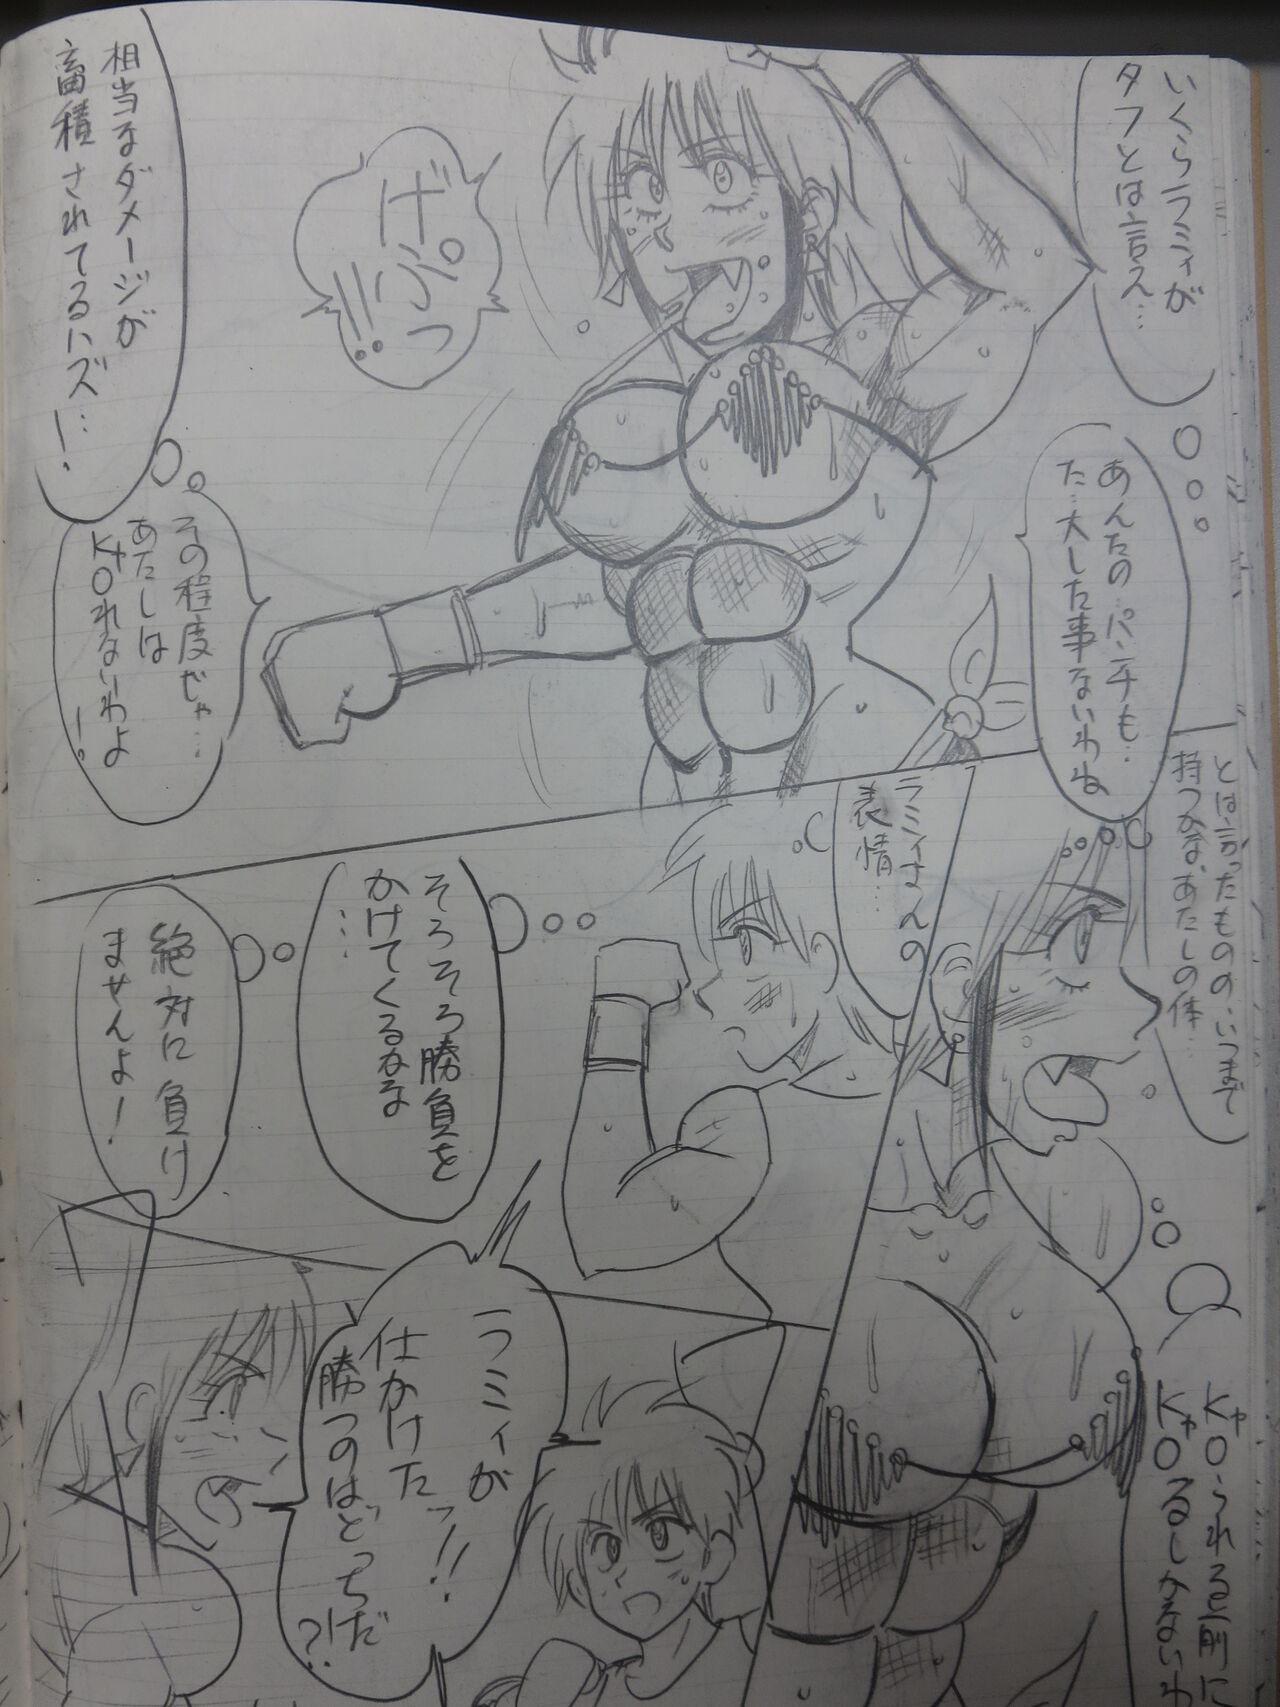 いくらラミィが
タフとは言え…
げぷっ
!!
相当なダメージが
畜積されてるハズ…!
あんたのパンチも…
た…大した事ないわね
その程度じゃ…
あたしは
KOれないわよ!
とは言ったものの、いつまで
持つかな、あたしの体…
KOられる前に
KOるしかないわ
ラミィさんの
表情…
そろそろ勝負を
かけてくるかな
…
絶対に負け
ませんよ!
ラミィが
仕かけたっ!!
勝つのはどっちだ
?!